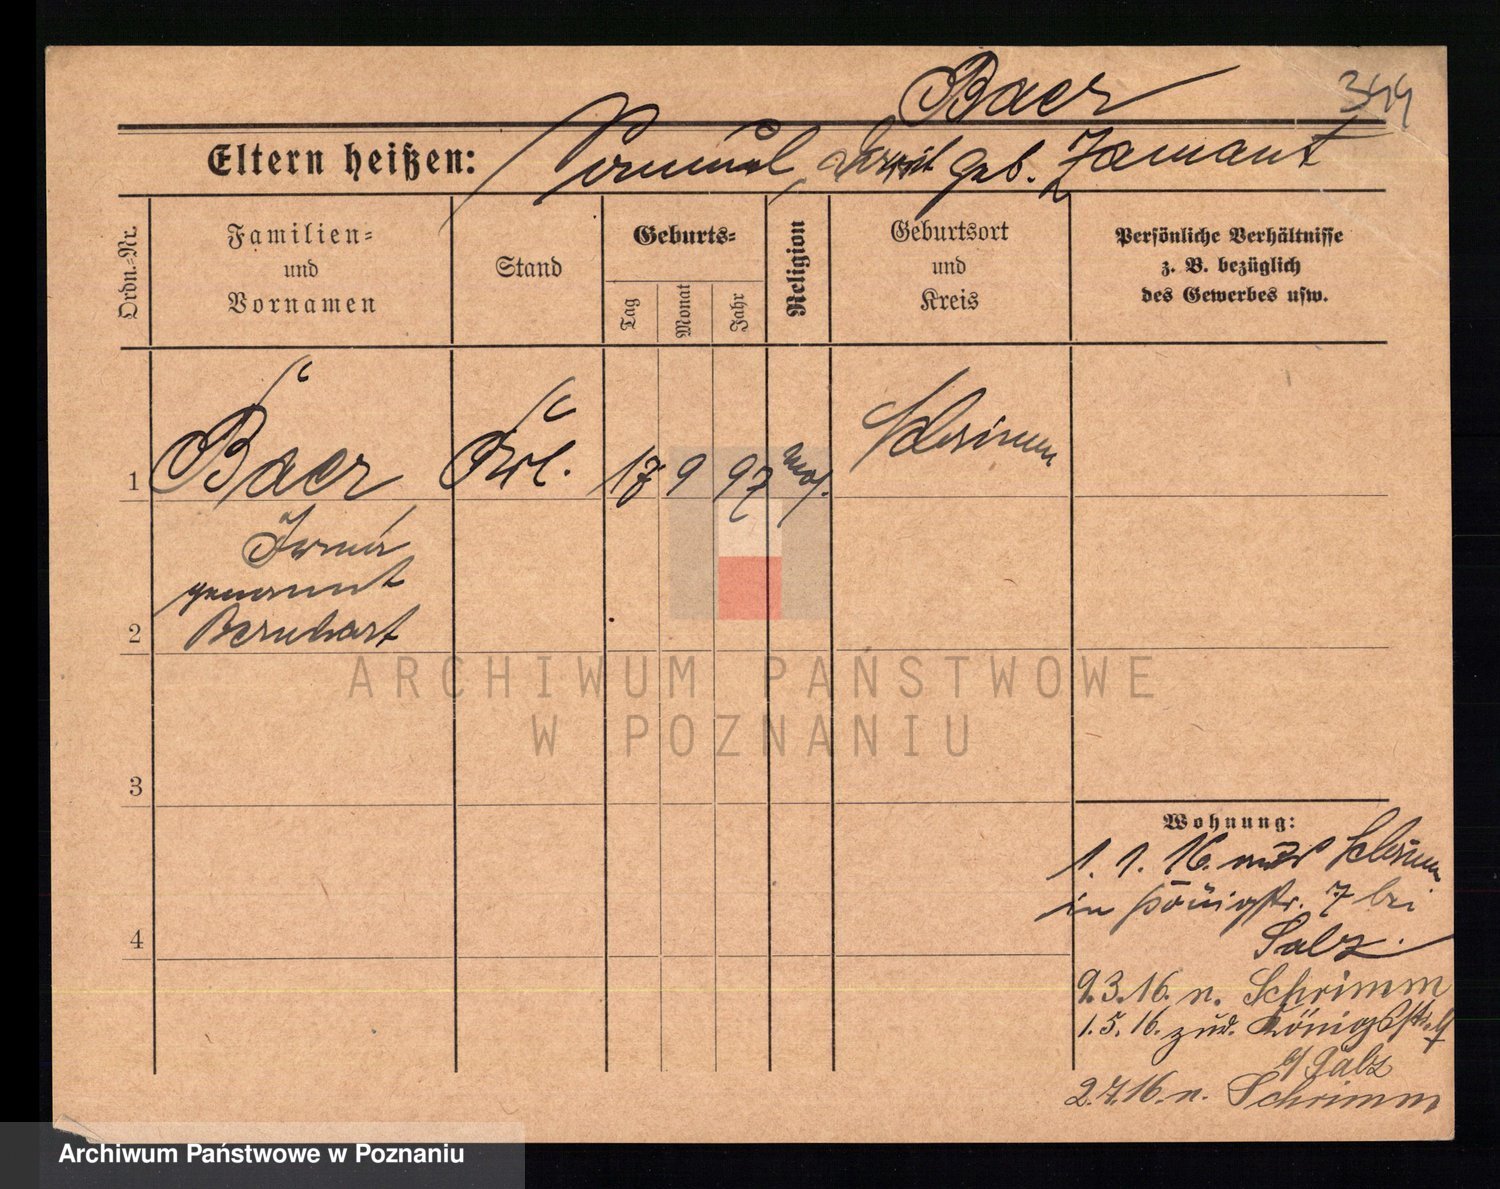 Baer
344
Eltern heißen: Samuel, geb. Zamant
Ordn.-Nr.
Familien-
und
Vornamen
Stand
Geburts-
Tag
Monat
Jahr
Religion
Geburtsort
und
Kreis
Persönliche Verhältnisse
z. B. bezüglich
des Gewerbes usw.
1 Baer Frl. 17 9 97 mos. Schrimm
Irma
genannt
Bernhart
2
3
4
Wohnung:
1. 1. 16. aus Schrimm
in Königstr. 7 bei
Salz.
9.3.16. n. Schrimm
1.5.16. zur. Königsstr.
b/ Salz
2.7.16. n. Schrimm
ARCHIWUM PAŃSTWOWE
W POZNANIU
Archiwum Państwowe w Poznaniu